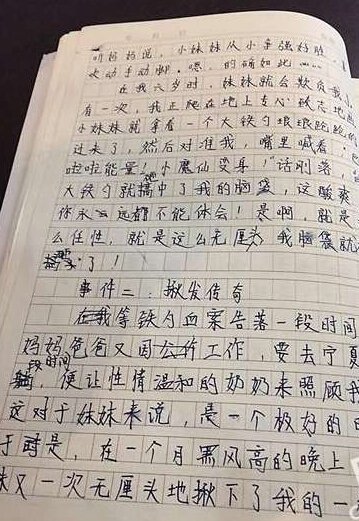 听妈妈说，小妹妹从小争强好胜，
欢动手动脚。嗯，的确如此……
在我六岁时，妹妹就会欺负我
有一次，我正爬在地上专心
小妹妹就拿着一个大铁勺踉踉跄跄
过来了，然后对准我，嘴里喊着，
啦啦能量！小魔仙变身！”话刚落，
大铁勺就搞中了我的脑袋，这酸爽
你永远都不能体会！是啊，就是
么任性，就是这么无厘头，我脑袋就
了！
事件二：揪发传奇
在我等铁勺血案告落一段时间
妈妈爸爸又因公的工作，要去宁夏
段时间，便让性情温和的奶奶来照顾我
这对于妹妹来说，是一个极好的
于时是，在一个月黑风高的晚上
妹又一次无厘头地揪下了我的一